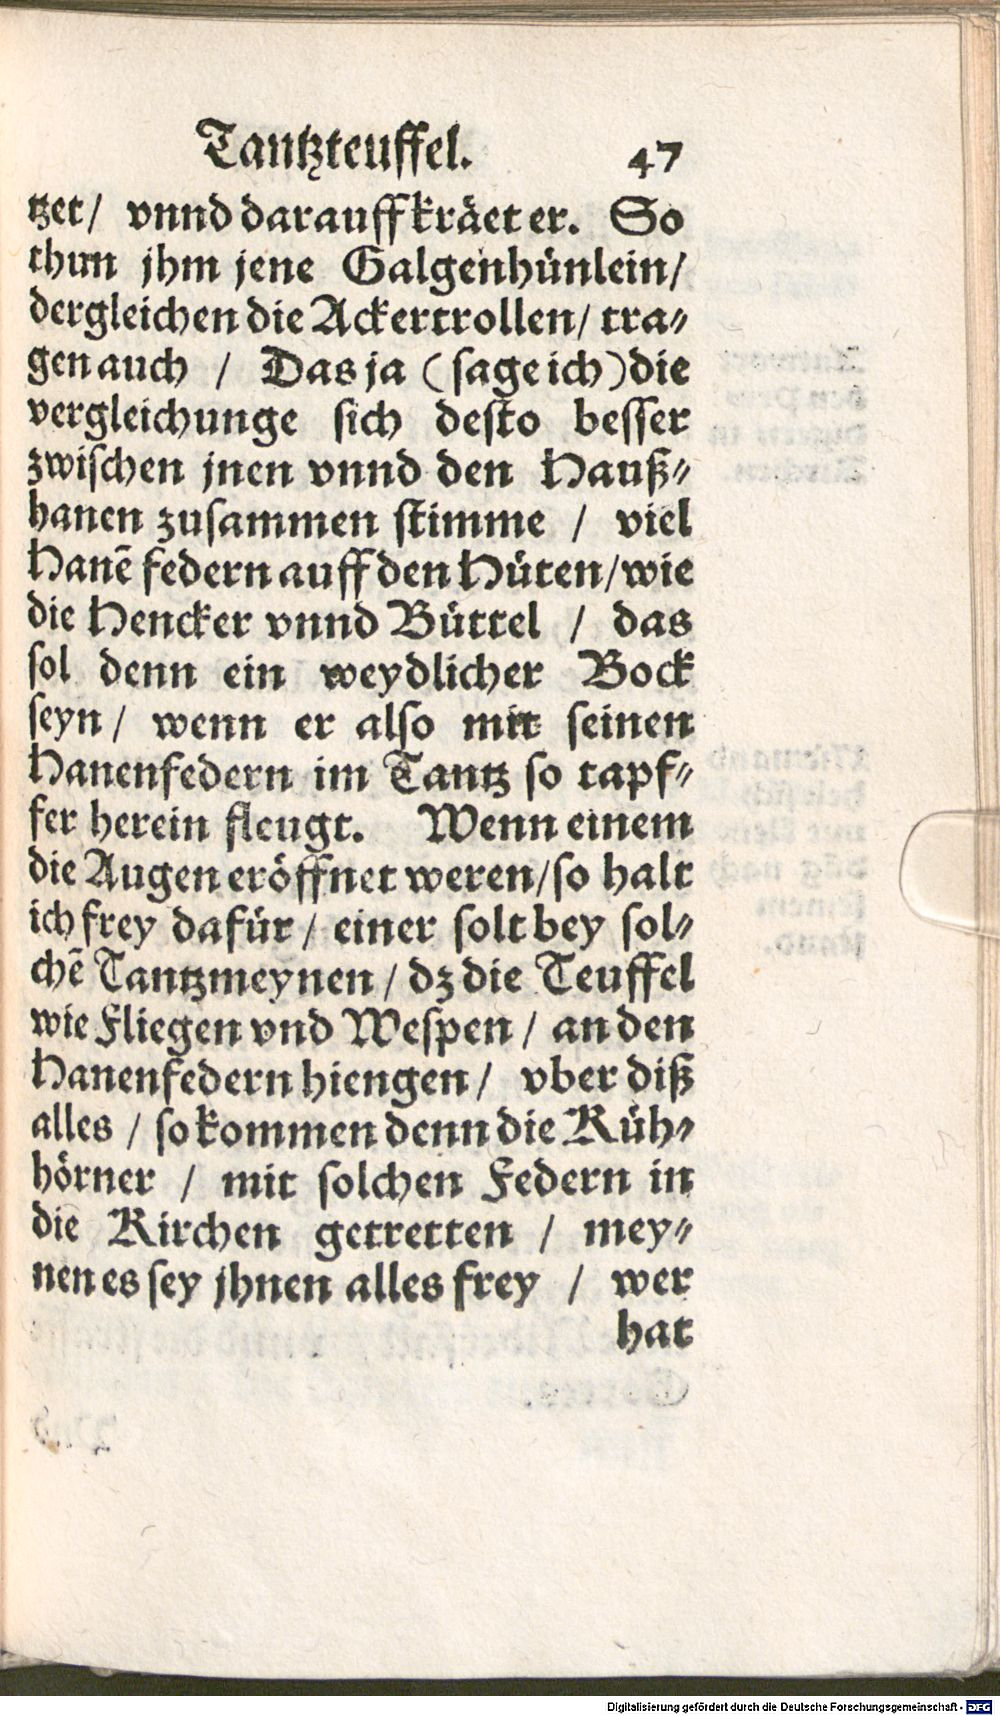 Tantzteuffel. 47
tzet/ vnnd darauff kräet er. So
thun jhm jene Galgenhünlein/
dergleichen die Ackertrollen/ tra⸗
gen auch / Das ja (sage ich) die
vergleichunge sich desto besser
zwischen jnen vnnd den Hauß⸗
hanen zusammen stimme / viel
Hanē federn auff den Hüten/wie
die Hencker vnnd Büttel / das
sol denn ein weydlicher Bock
seyn/ wenn er also mit seinen
Hanenfedern im Tantz so tapf⸗
fer herein fleugt. Wenn einem
die Augen eröffnet weren/so halt
ich frey dafür/ einer solt bey sol⸗
chē Tantzmeynen/ dz die Teuffel
wie Fliegen vnd Wespen/ an den
Hanenfedern hiengen/ vber diß
alles / so kommen denn die Küh⸗
hörner / mit solchen Federn in
die Kirchen getretten / mey⸗
nen es sey jhnen alles frey / wer
hat
Digitalisierung gefördert durch die Deutsche Forschungsgemeinschaft - DFG